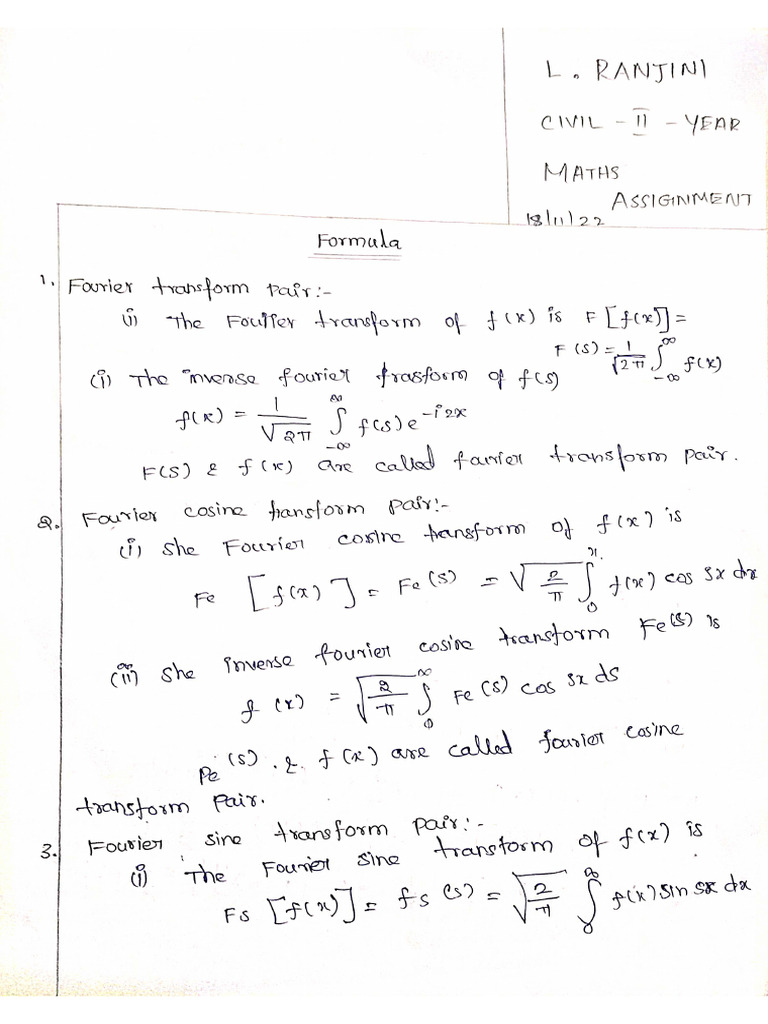 L. RANJINI
CIVIL - II - YEAR
MATHS
ASSIGNMENT
18/11/22
Formula
1. Fourier transform pair:-
(i) The Fourier transform of f(x) is F[f(x)] =
F(s) = 1/√2π ∫_{-∞}^{∞} f(x)
(i) The inverse fourier frasform of f(s)
f(x) = 1/√2π ∫_{-∞}^{∞} f(s) e^{-i2x}
F(s) & f(x) are called farier transform pair.
2. Fourier cosine transform pair:-
(i) she Fourier cosine transform of f(x) is
Fe [f(x)] = Fe(s) = √2/π ∫_0 f(x) cos sx dx
(ii) she inverse fourier cosine transform Fe(s) is
f(x) = √2/π ∫_0^∞ Fe(s) cos sx ds
Pe(s) . & f(x) are called fourier cosine
transform pair.
3. Fourier sine transform pair:-
(i) The Fourier sine transform of f(x) is
Fs [f(x)] = fs(s) = √2/π ∫_0^∞ f(x) sin sx dx